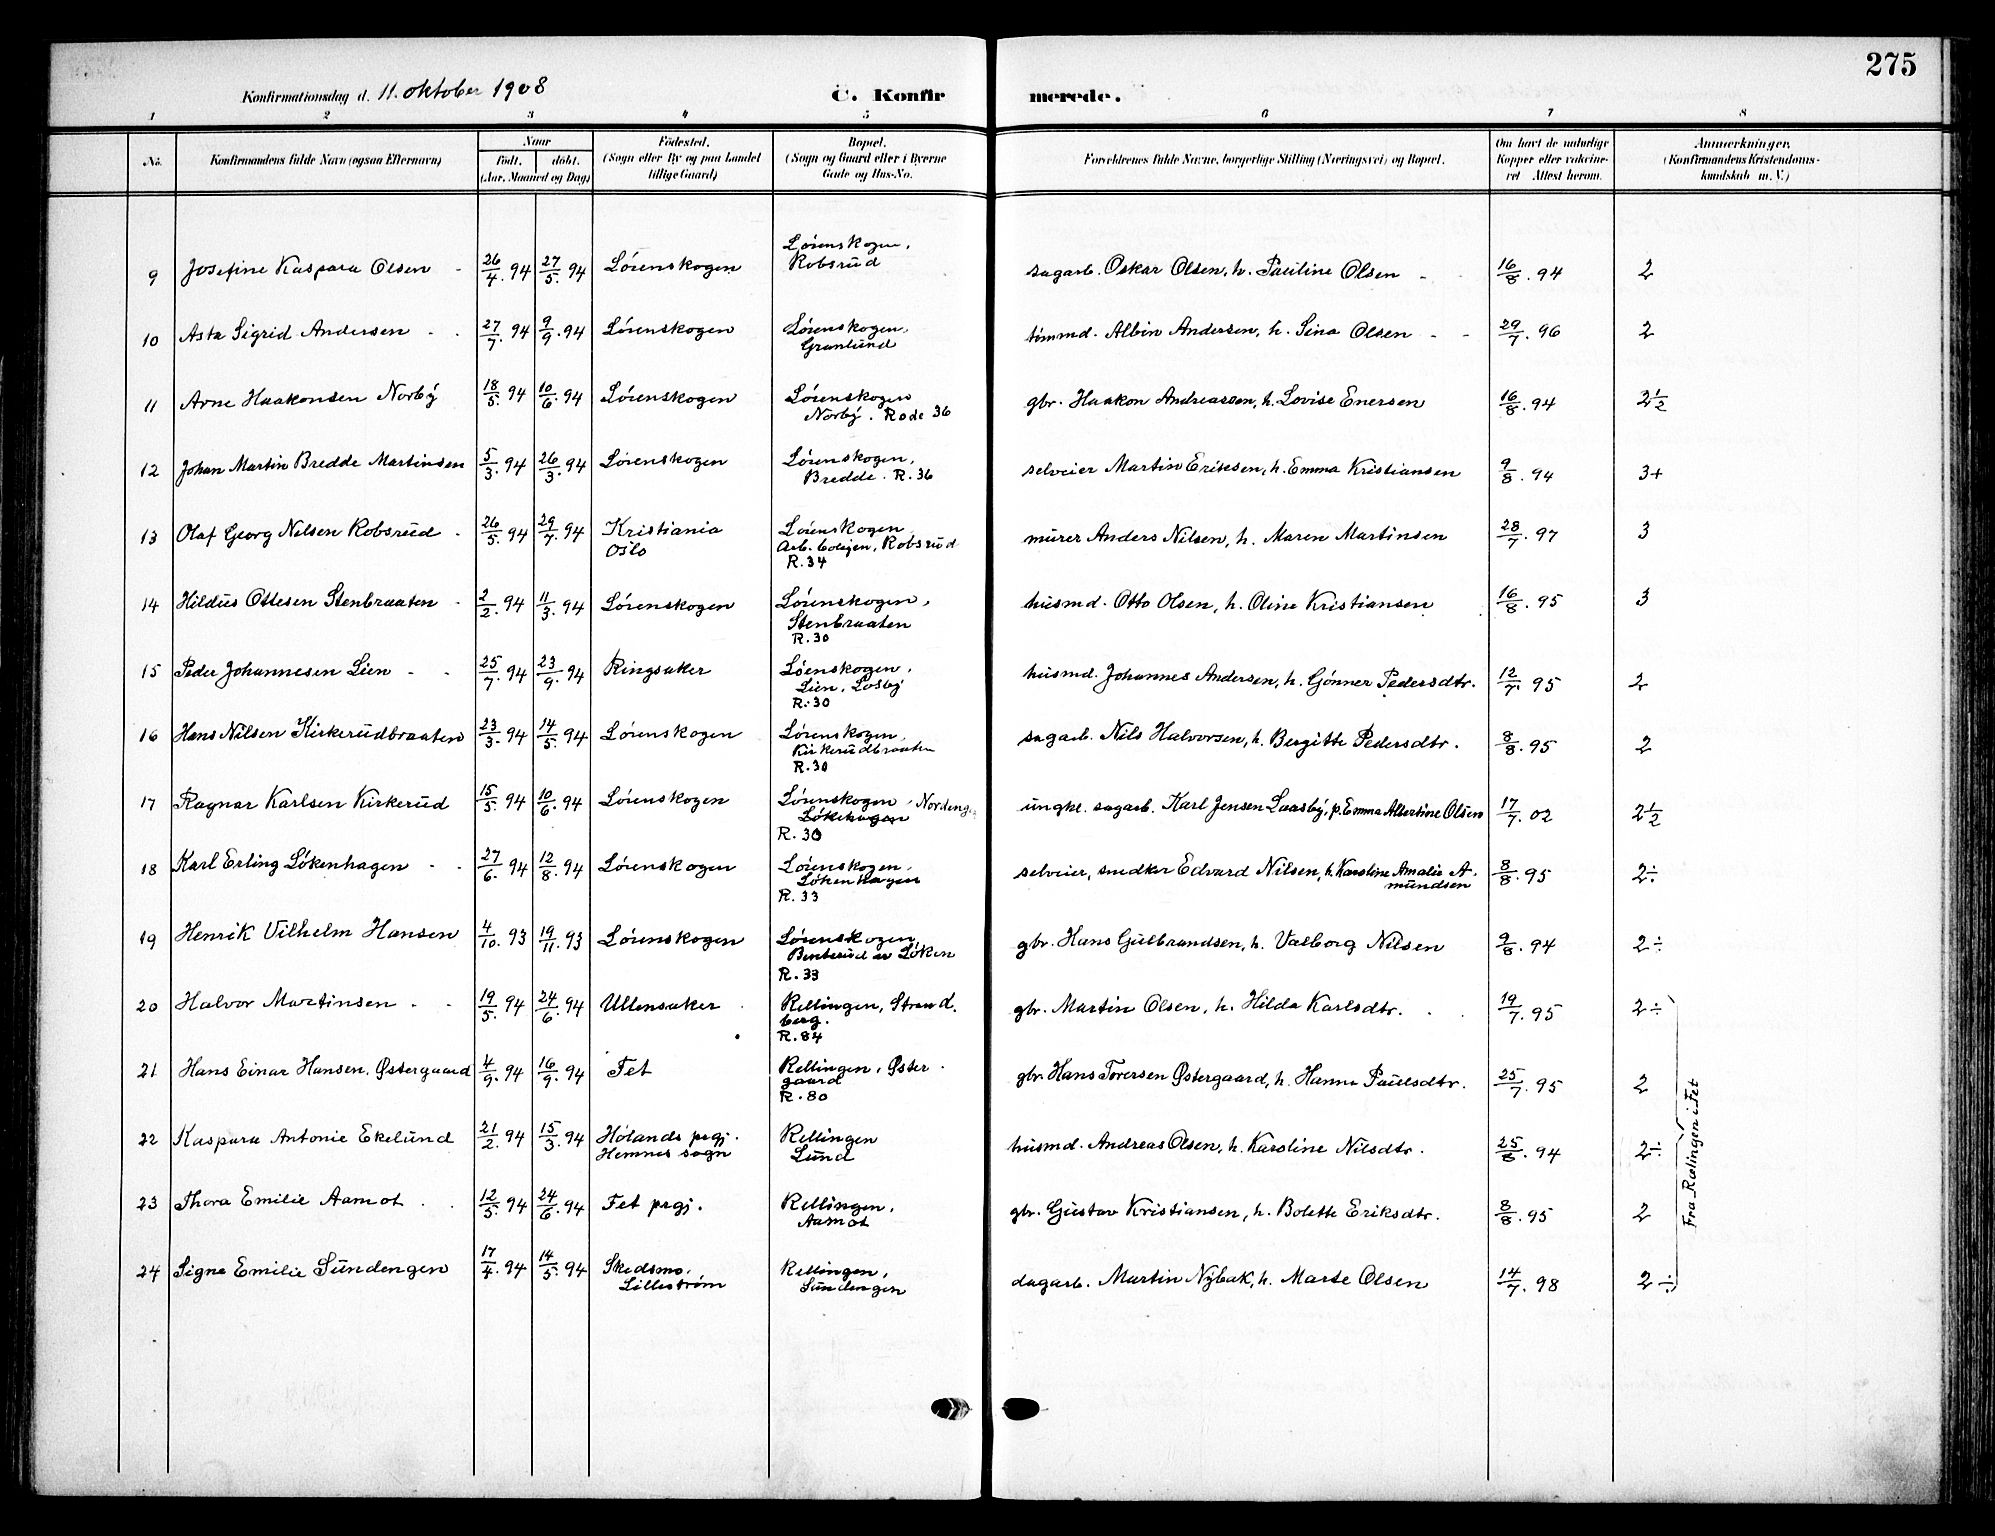 275
Konfirmationsdag d. 11. oktober 1908
C. Konfir merede.
1 2 3 4 5 6 7 8
No. Konfirmandens fulde Navn (ogsaa Efternavn) Naar födt. döbt. (Aar, Maaned og Dag) Födested. (Sogn eller By og paa Landet tillige Gaard) Bopæl. (Sogn og Gaard eller i Byerne Gade og Hus-No. Forældrenes fulde Navne, borgerlige Stilling (Næringsvei) og Bopæl. Om havt de naturlige Kopper eller vakcineret Attest herom. Anmærkninger, (Konfirmandens Kristendomskundskab m. V.)
9 Josefine Kaspara Olsen 26/4. 94 27/5. 94 Lörenskogen Lörenskogen, Robsrud sagarb. Oskar Olsen, h. Pauline Olsen 16/8. 94 2
10 Asta Sigrid Andersen 27/7. 94 9/9. 94 Lörenskogen Lörenskogen, Granlund tömmd. Albin Andersen, h. Lina Olsen 29/7. 96 2
11 Arne Haakonsen Norby 18/5. 94 10/6. 94 Lörenskogen Lörenskogen Norby. Rode 36 gbr. Haakon Andreassen, h. Lovise Enersen 16/8. 94 2½
12 Johan Martin Bredde Martinsen 5/3. 94 26/3. 94 Lörenskogen Lörenskogen, Bredde. R. 36 selveier Martin Eriksen, h. Emma Kristiansen 9/8. 94 3+
13 Olaf Georg Nilsen Robsrud 26/5. 94 29/7. 94 Kristiania Oslo Lörenskogen Arb. bolijen, Robsrud R. 34 murer Anders Nilsen, h. Maren Martinsen 28/7. 97 3
14 Hildus Ottesen Stenbraaten 2/2. 94 11/3. 94 Lörenskogen Lörenskogen, Stenbraaten R. 30 husmd. Otto Olsen, h. Oline Kristiansen 16/8. 95 3
15 Peder Johannesen Lien 25/7. 94 23/9. 94 Ringsaker Löenskogen, Lien, Losby R. 30 husmd. Johannes Andersen, h. Gönner Pedersdtr. 12/7. 95 2
16 Hans Nilsen Kirkerudbraaten 23/3. 94 14/5. 94 Lörenskogen Lörenskogen, Kirkerudbraaten R. 30 sagarb. Nils Halvorsen, h. Bergitte Pedersdtr. 8/8. 95 2
17 Ragnar Karlsen Kirkerud 15/5. 94 10/6. 94 Lörenskogen Lörenskogen, Nordeng, Lökehagen R. 30 ungkl. sagarb. Karl Jensen Laasby, p. Emma Albertine Olsen 17/7. 02 2½
18 Karl Erling Lökenhagen 27/6. 94 12/8. 94 Lörenskogen Lörenskogen, Lökenhagen R. 33 selveier, snedker Edvard Nilsen, h. Karoline Amalie Amundsen 8/8. 95 2÷
19 Henrik Vilhelm Hansen 4/10. 93 19/11. 93 Lörenskogen Lörenskogen Benterud av Löken R. 33 gbr. Hans Gulbrandsen, h. Valborg Nilsen 9/8. 94 2÷
20 Halvor Martinsen 19/5. 94 24/6. 94 Ullensaker Rellingen, Strandberg. R. 84 gbr. Martin Olsen, h. Hilda Karlsdtr. 19/7. 95 2÷
21 Hans Einar Hansen Østergaard 4/9. 94 16/9. 94 Fet Rellingen, Østergaard R. 80 gbr. Hans Toresen Østergaard, h. Hanna Paulsdtr. 25/7. 95 2
22 Kaspara Antonie Ekelund 21/2. 94 15/3. 94 Hölands prgj. Hemnes sogn Rellingen Lund husmd. Andreas Olsen, h. Karoline Nilsdtr. 25/8. 94 2÷
23 Thora Emilie Aamot 12/5. 94 24/6. 94 Fet prgj. Rellingen, Aamot gbr. Gustav Kristiansen, h. Bolette Eriksdtr. 8/8. 95 2
24 Signe Emilie Sundengen 17/4. 94 14/5. 94 Skedsmo, Lilleström Rellingen, Sundengen dagarb. Martin Nybak, h. Marte Olsen 14/7. 98 2÷
Fra Rælingen i Fet